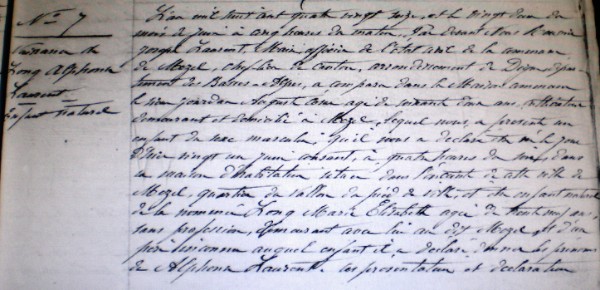 No 7
Naissance de
Long Alphonse
Laurent
Enfant naturel
L'an mil huit cent quatre vingt onze, et le vingt deux du
mois de juin à cinq heures du matin, Par devant Nous
Laurent, Maire officier de l'état civil de la commune
de Mezel, Chef lieu de canton, arrondissement de Digne, dépar
tement des Basses-Alpes, a comparu dans la Maison commune
le sieur Jourdan Auguste agé de soixante ans,
demeurant et domicilié à Mezel, lequel nous a présenté un
enfant de sexe masculin, qu'il nous a déclaré être né le jour
d'hier vingt un juin courant, à quatre heures du soir, dans
la maison d'habitation située dans l'enceinte de cette ville de
Mezel, quartier du vallon du pied de ville, et être enfant naturel
de la nommée Long Marie Elisabeth agée de trente neuf ans,
sans profession, demeurant avec lui au dit Mezel, et d'un
père inconnu auquel enfant il a déclaré donner les prénoms
de Alphonse Laurent. Ces présentation et déclaration